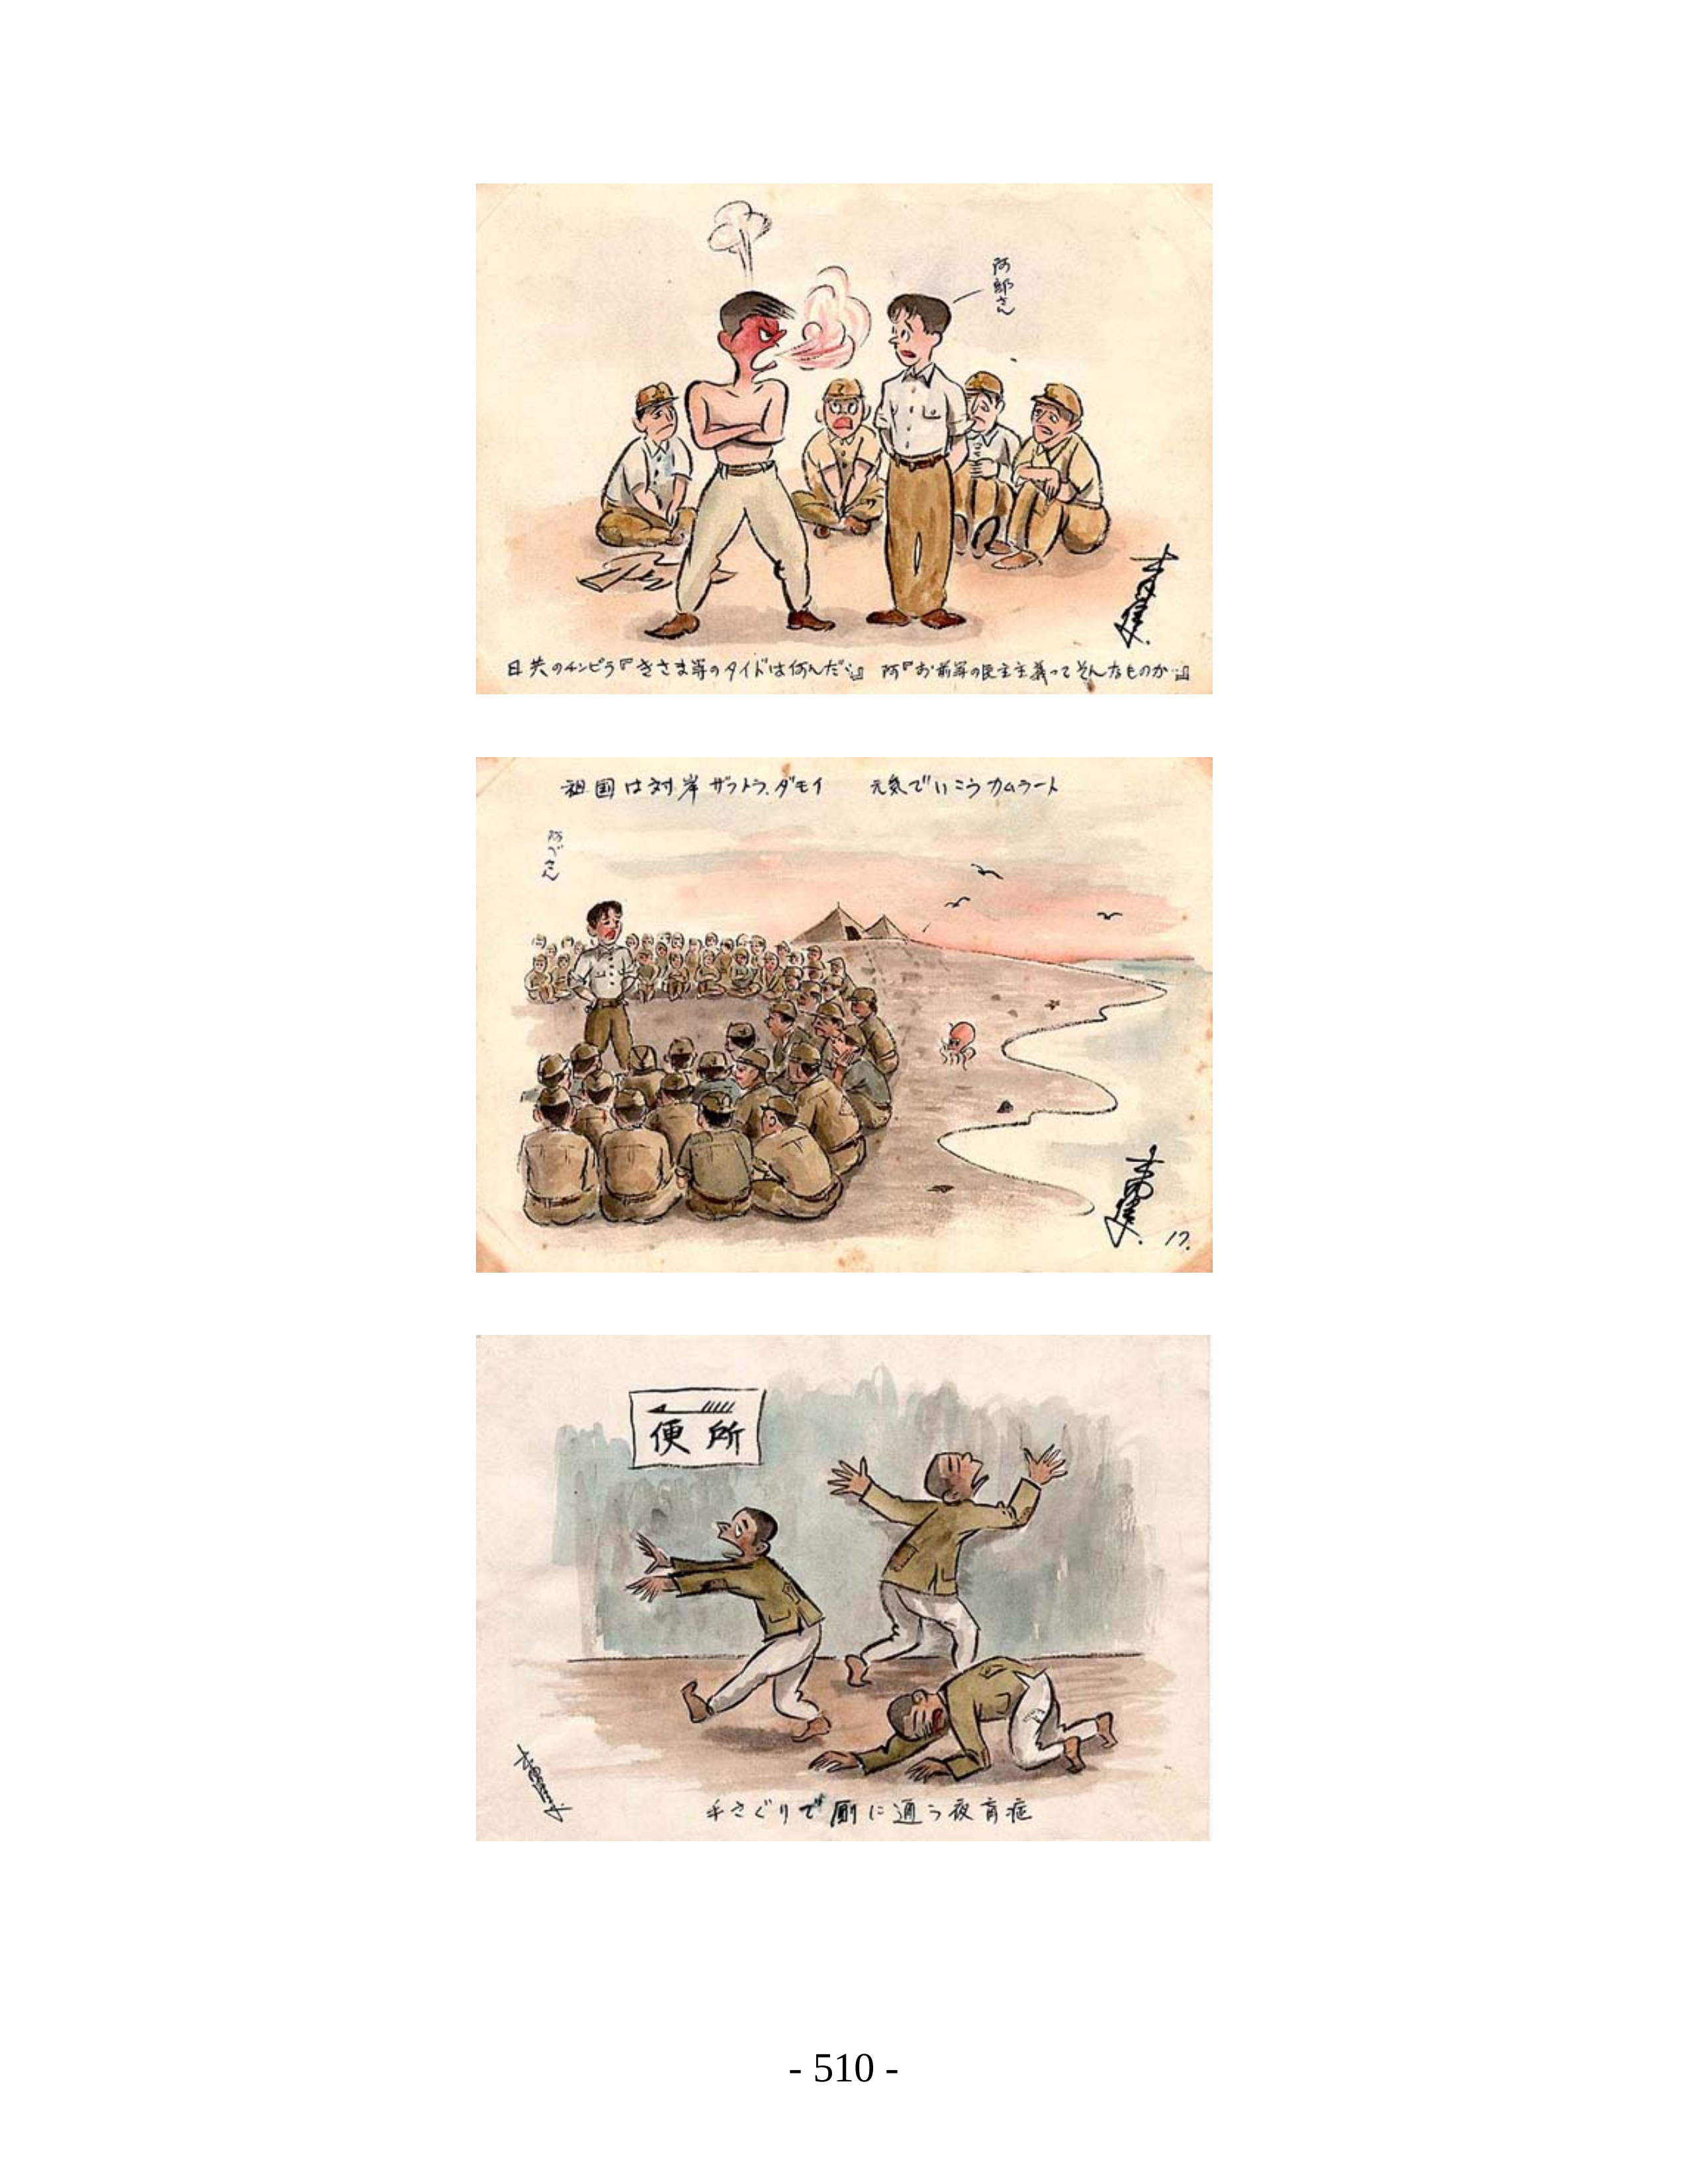 阿部さん
日共のチンピラ『きさま等のタイドは何んだ‥』 阿『お前等の民主主義ってそんなものか‥』
祖国は対岸 ザフトラ、ダモイ 元気でいこうカムラート
阿べさん
17.
便所
手さぐりで厠に通う夜盲症
- 510 -